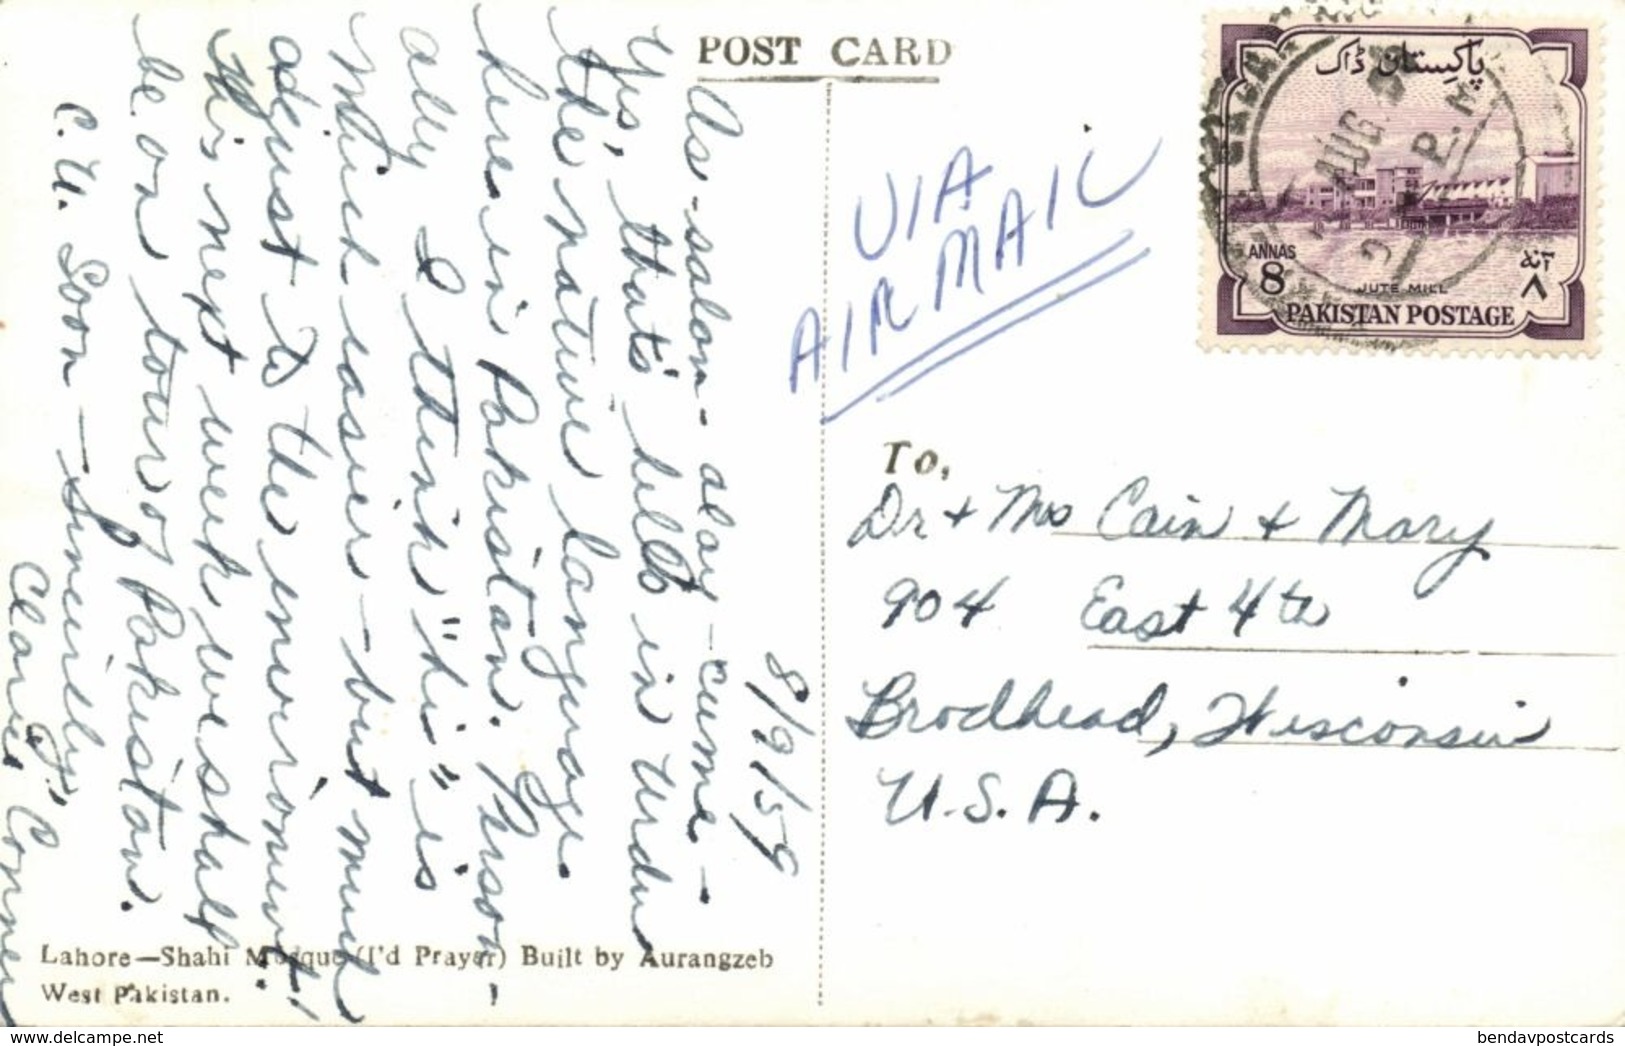 POST CARD
پاکستان ڈاک
ANNAS
8
آنہ
٨
JUTE MILL
PAKISTAN POSTAGE
AUG
P.M
VIA
AIR MAIL
8/9/59
As-salom-alay-cume-
Yes, that's hello in Urdu
the native language
here in Pakistan. Person-
ally I think "hi" is
much easier - but must
adjust to the environment!
This next week we shall
be on tour of Pakistan.
C.U. Soon - Sincerely,
Claris
To,
Dr + Mrs Cain + Mary
904 East 4th
Brodhead, Wisconsin
U.S.A.
Lahore—Shahi Mosque (I'd Prayer) Built by Aurangzeb
West Pakistan.
bendavpostcards